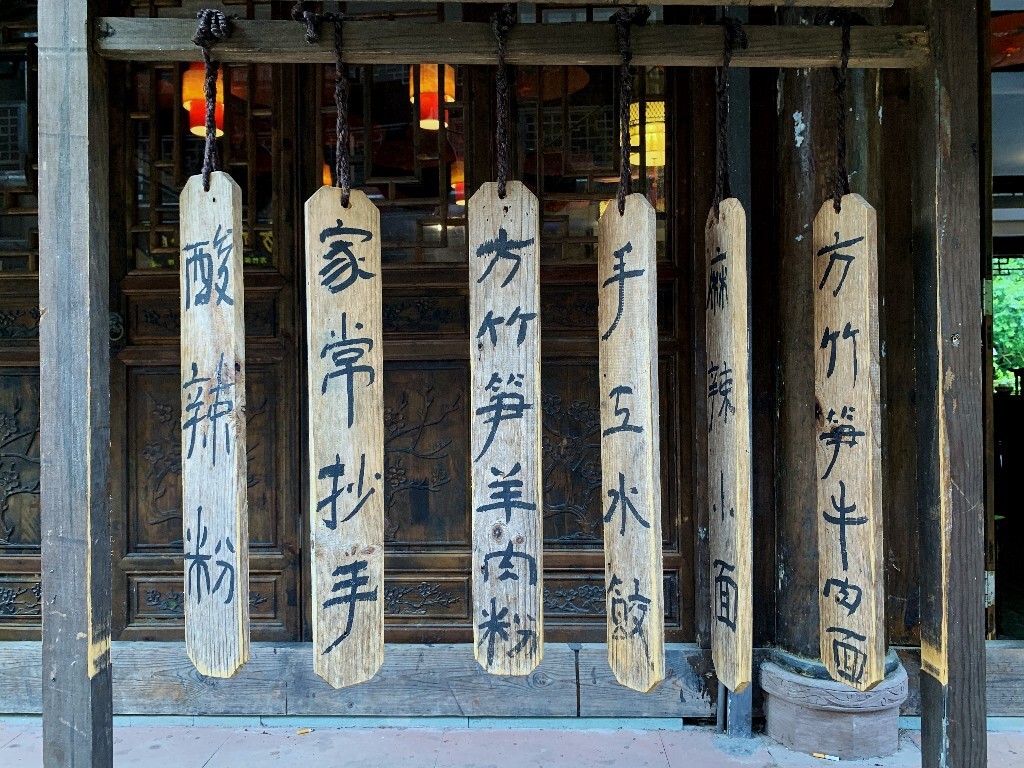 酸辣粉
家常抄手
方竹笋羊肉粉
手工水餃
麻辣小面
方竹笋牛肉面